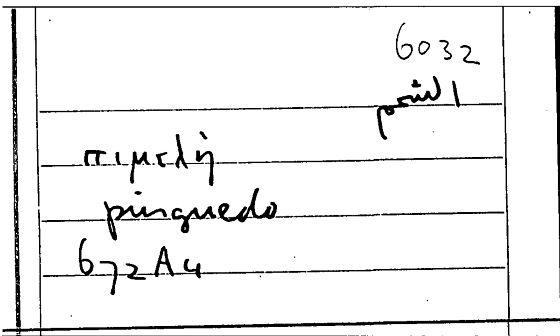 6032
πιμελή
pinguedo
672 A4